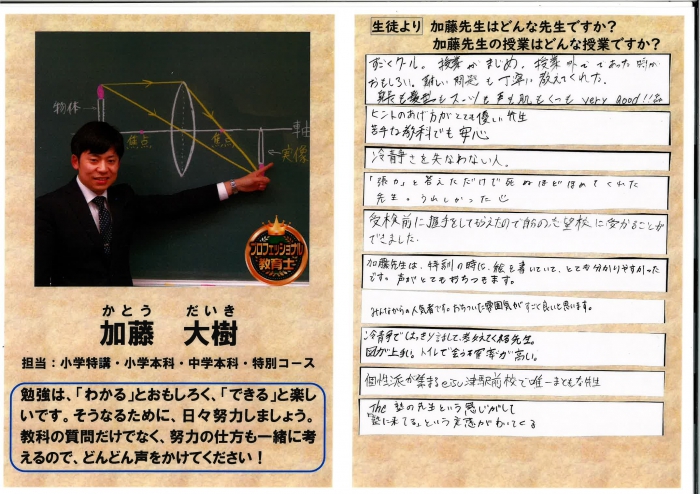 物体
焦点
焦点
軸
実像
プロフェッショナル
教育士
かとう だいき
加藤 大樹
担当：小学特講・小学本科・中学本科・特別コース
勉強は、「わかる」とおもしろく、「できる」と楽し
いです。そうなるために、日々努力しましょう。
教科の質問だけでなく、努力の仕方も一緒に考
えるので、どんどん声をかけてください！
生徒より 加藤先生はどんな先生ですか？
加藤先生の授業はどんな授業ですか？
すごくクール。授業がまじめ。授業外で
おもしろい。難しい問題も丁寧に教えてくれた。
髪型もスーツも声も肌もくつも very good!!
ヒントのあげ方がとても優しい先生
苦手な教科でも安心
冷静さを失なわない人。
「張力」と答えただけで死ぬほどほめてくれた
先生。うれしかった
受検前に握手をしてもらえたので前の志望校に受かることが
できました。
加藤先生は、特訓の時に、絵を書いていて、とても分かりやすかった
です。声がとてもおちつきます。
みんなからの人気者です。おちついた雰囲気がすごく良いと思います。
冷静ではっきり話して、教えてくれる先生。
図が上手い。トイレで会う確率が高い。
個性派が集まるeisu津駅前校で唯一まともな先生
The 塾の先生という感じがして
「塾に来てる」という実感がわいてくる